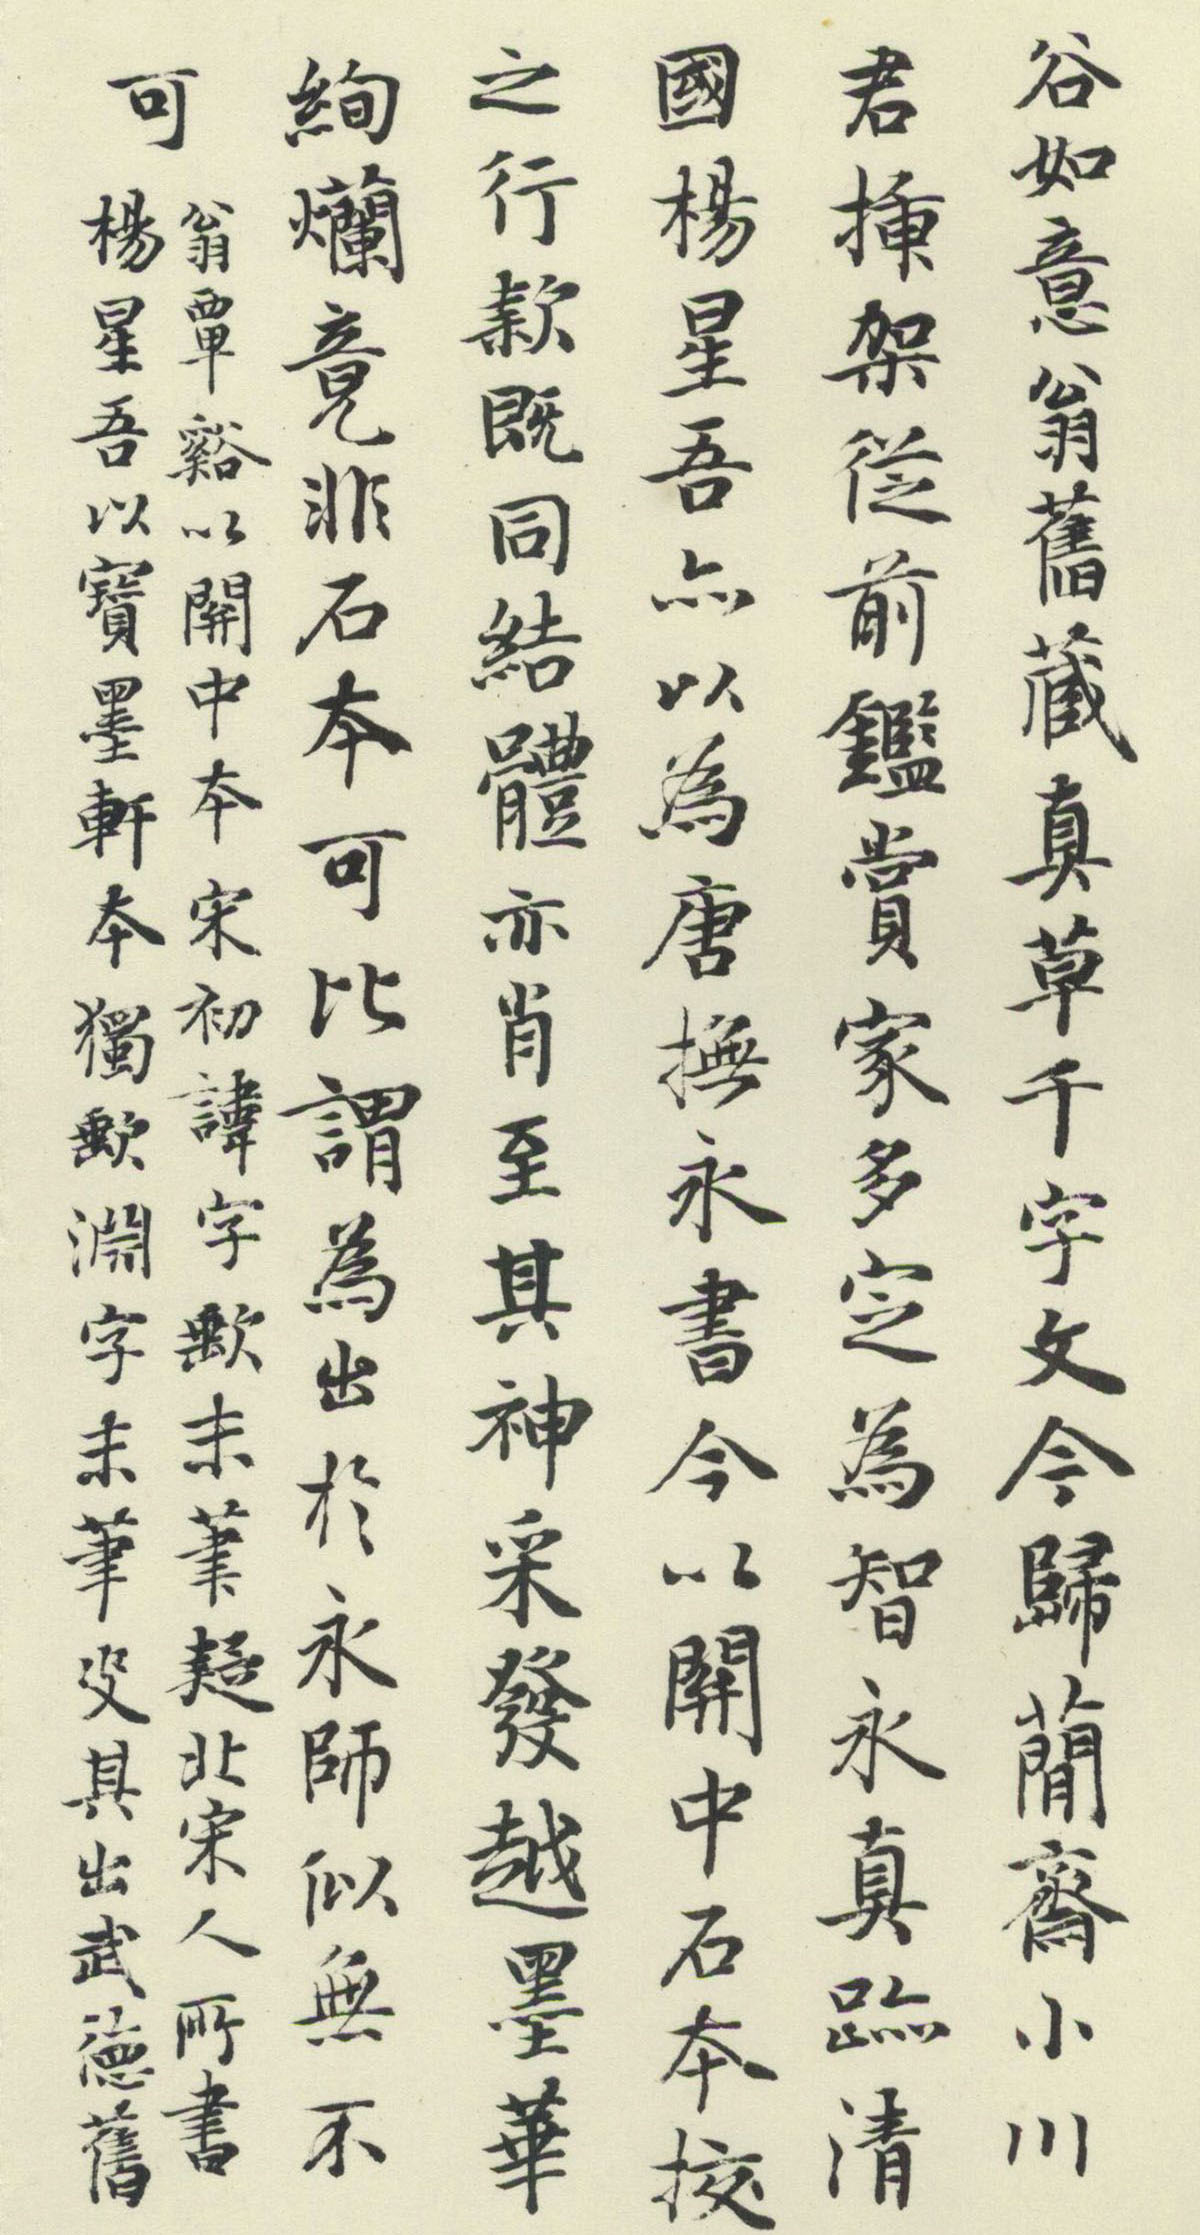 谷如意翁舊藏真草千字文今歸蕑齋小川
君揷架從前鑑賞家多定為智永真跡清
國楊星吾亦以為唐撫永書今以關中石本挍
之行款既同結體亦肖至其神采發越墨華
絢爛竟非石本可比謂為出於永師似無不
可
翁覃谿以關中本宋初諱字歟末筆疑北宋人所書
楊星吾以寶墨軒本獨歟淵字末筆定其出武德舊